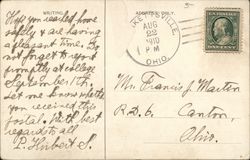 WRITING
ADDRESS ONLY.
Hope you reached home
safely & are having
a pleasant time. Do
not forget to report
promptly at college
September 17th.
Let me know whether
you received this
postal. With best
regards to all
P. Hubert S.
KEYSVILLE
AUG
22
1910
P M
OHIO
Mr. Francis J. Martin
R.D. 6. Canton,
Ohio.